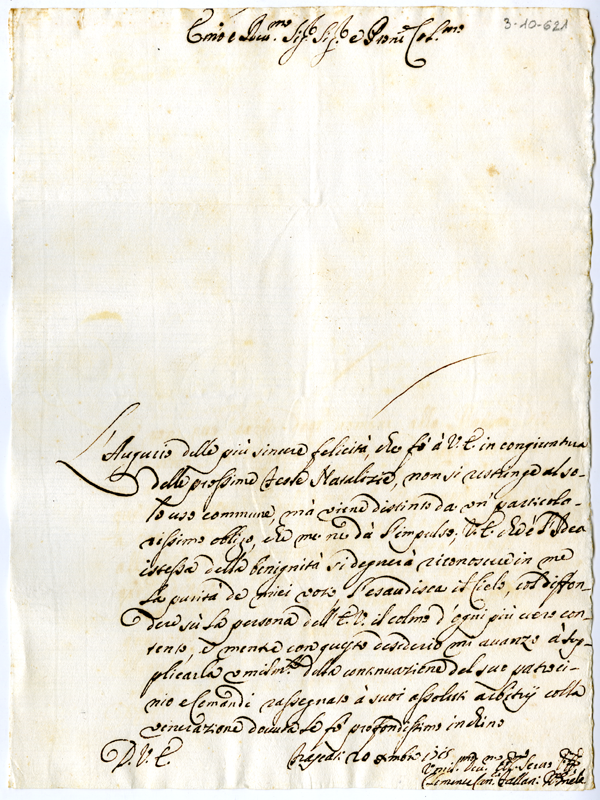 3-10-621
Em̃o e Reu.mo Sig.r Sig.r e Pron̄e Col.mo
L'Augurio delle più sincere felicità, che fò à V.E. in congiuntura
delle prossime Feste Natalizie, non si ristringe al so-
lo uso commune, mà viene distinto da un' particola-
rissimo obligo, che me ne dà l'impulso; V.E. ch'è l'Idea
istessa della benignità si degnerà riconoscere in me
la purità de miei voti, l'esaudisca il Cielo, col diffon-
dere sù la persona dell'E.V. il colmo d'ogni più vero con-
tento, e mentre con questo desiderio mi avanzo à sup-
plicarla umilm.te della continuazione del suo patroci-
nio e Comandi rassegnato à suoi assoluti arbitrij colla
venerazione dovuta le fò profondissimo inchino
D.V.E.
20 Xmbre